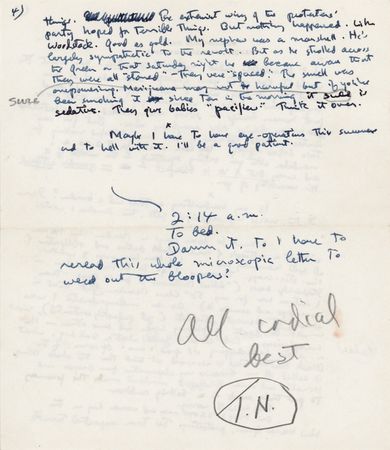 4)
things. The extremist wing of the protestors'
party hoped for Terrible Things. But nothing happened. Like
Woodstock. Good as gold. My nephew was a marshall. He's
largely sympathetic to the revolt. But as he strolled across
the Green on that Saturday night he became aware that
They were all "stoned" – They were "spaced." The smell was
overpowering. Marijuana may not be harmful but if you've
been smoking it since Ten in the morning it sure is
SURE
sedative. They give babies "pacifiers" Think it over.
Maybe I have to have eye-operations this summer
and to hell with it. I'll be a good patient.
2:14 a.m.
To bed.
Damn it. Do I have to
reread this whole microscopic letter to
weed out the bloopers?
All cordial
best
T.N.